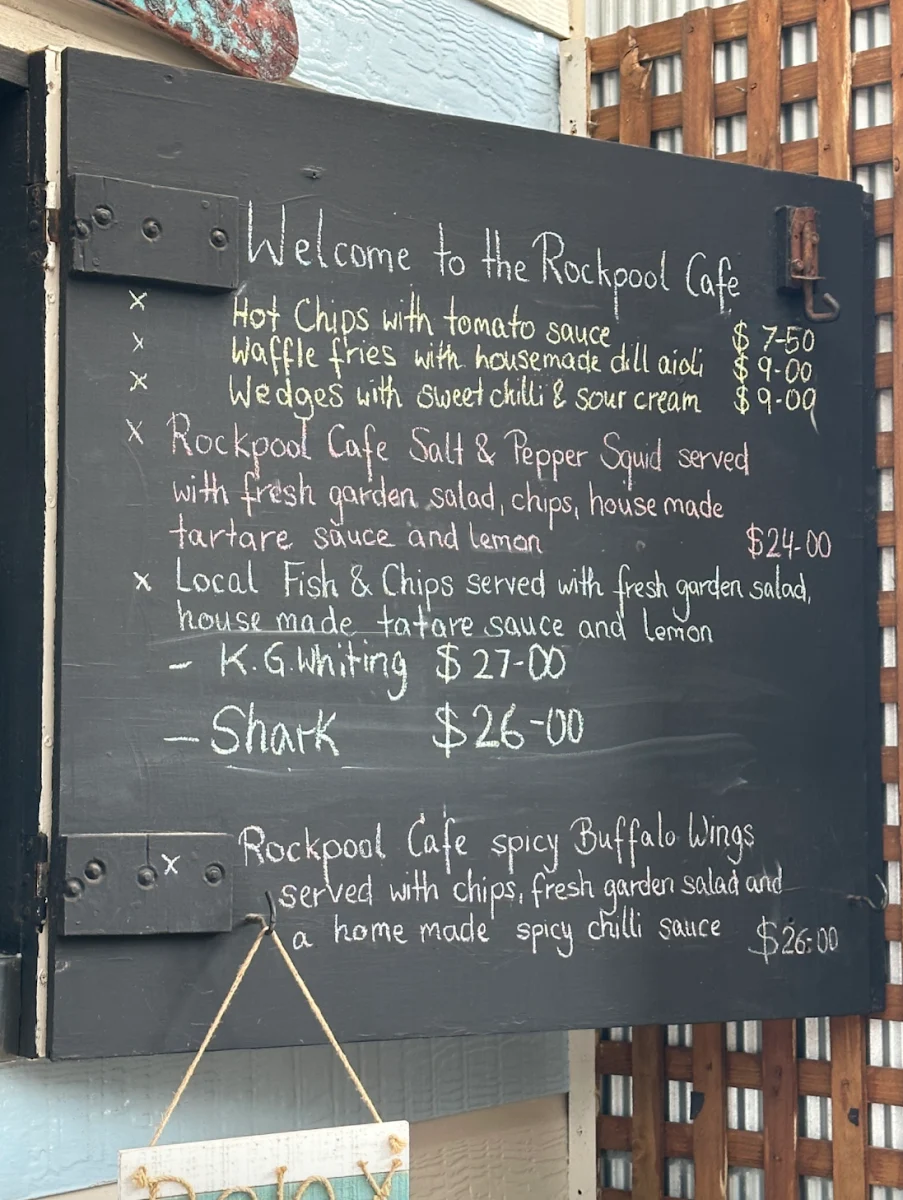 Welcome to the Rockpool Cafe
x Hot Chips with tomato sauce $ 7-50
x Waffle fries with housemade dill aioli $ 9-00
x Wedges with sweet chilli & sour cream $ 9-00
x Rockpool Cafe Salt & Pepper Squid served
with fresh garden salad, chips, house made
tartare sauce and lemon $24-00
x Local Fish & Chips served with fresh garden salad,
house made tatare sauce and lemon
- K.G.Whiting $ 27-00
- Shark $26-00
x Rockpool Cafe spicy Buffalo Wings
served with chips, fresh garden salad and
a home made spicy chilli sauce $26-00